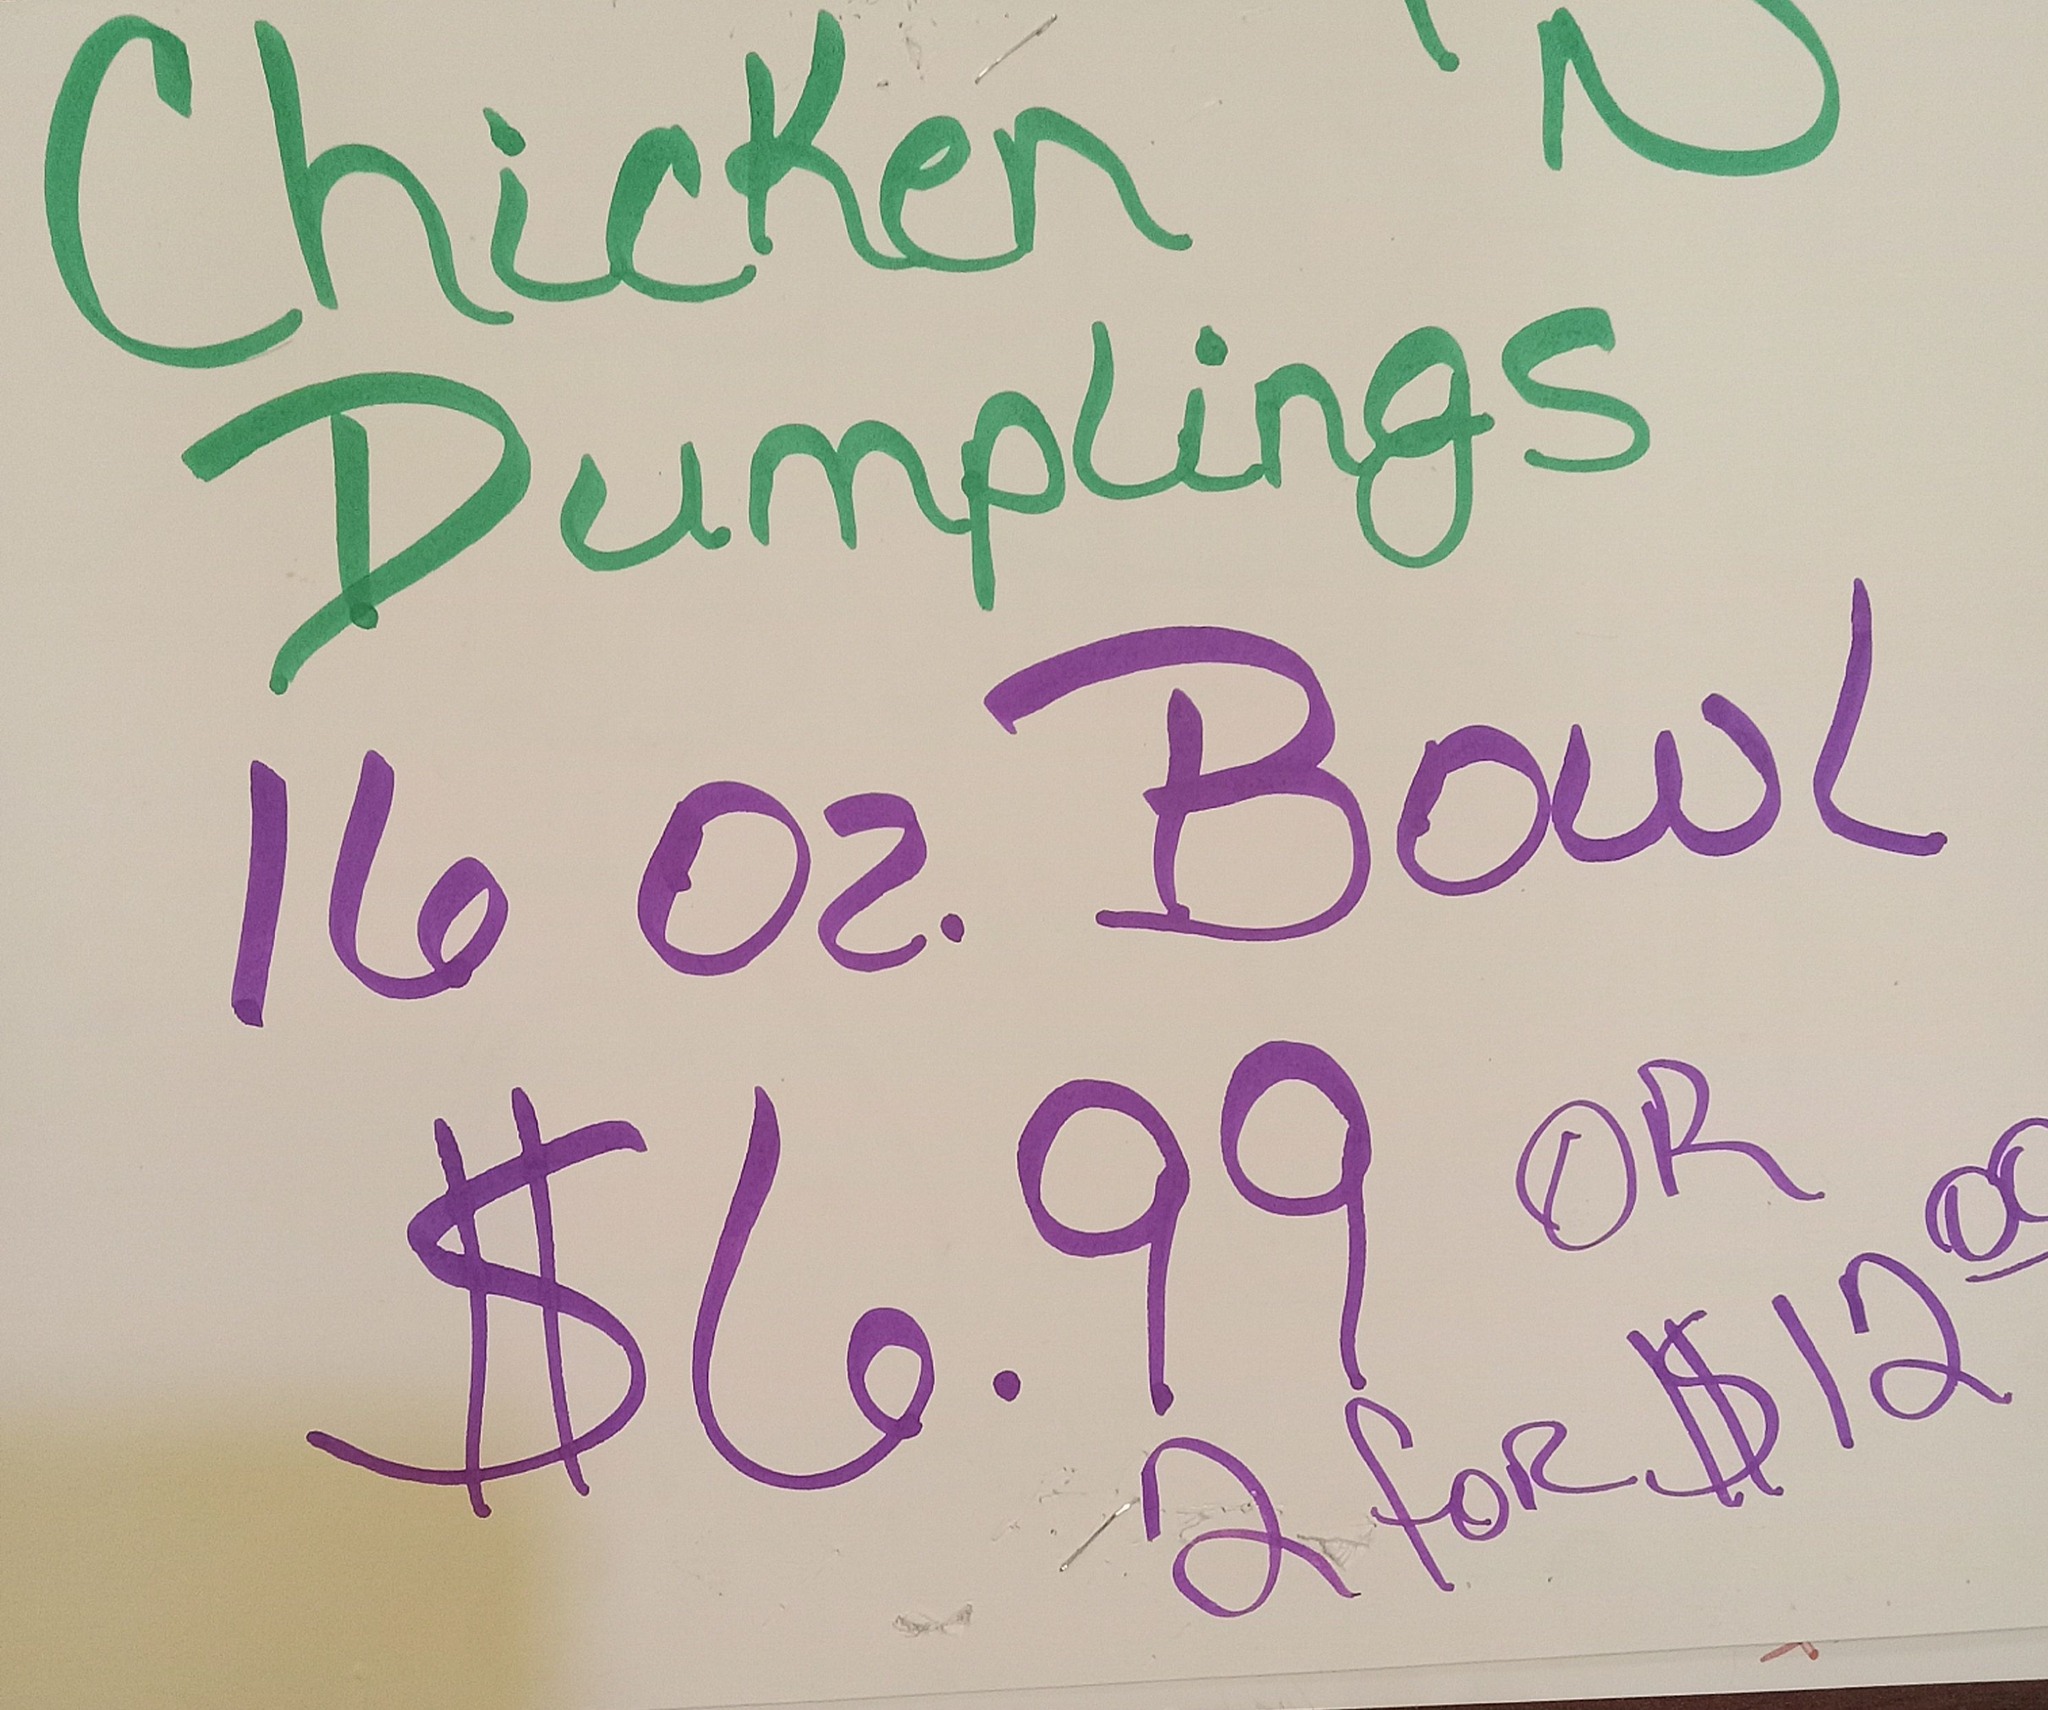 Chicken 'N
Dumplings
16 oz. Bowl
$6.99 OR
2 for $12.00